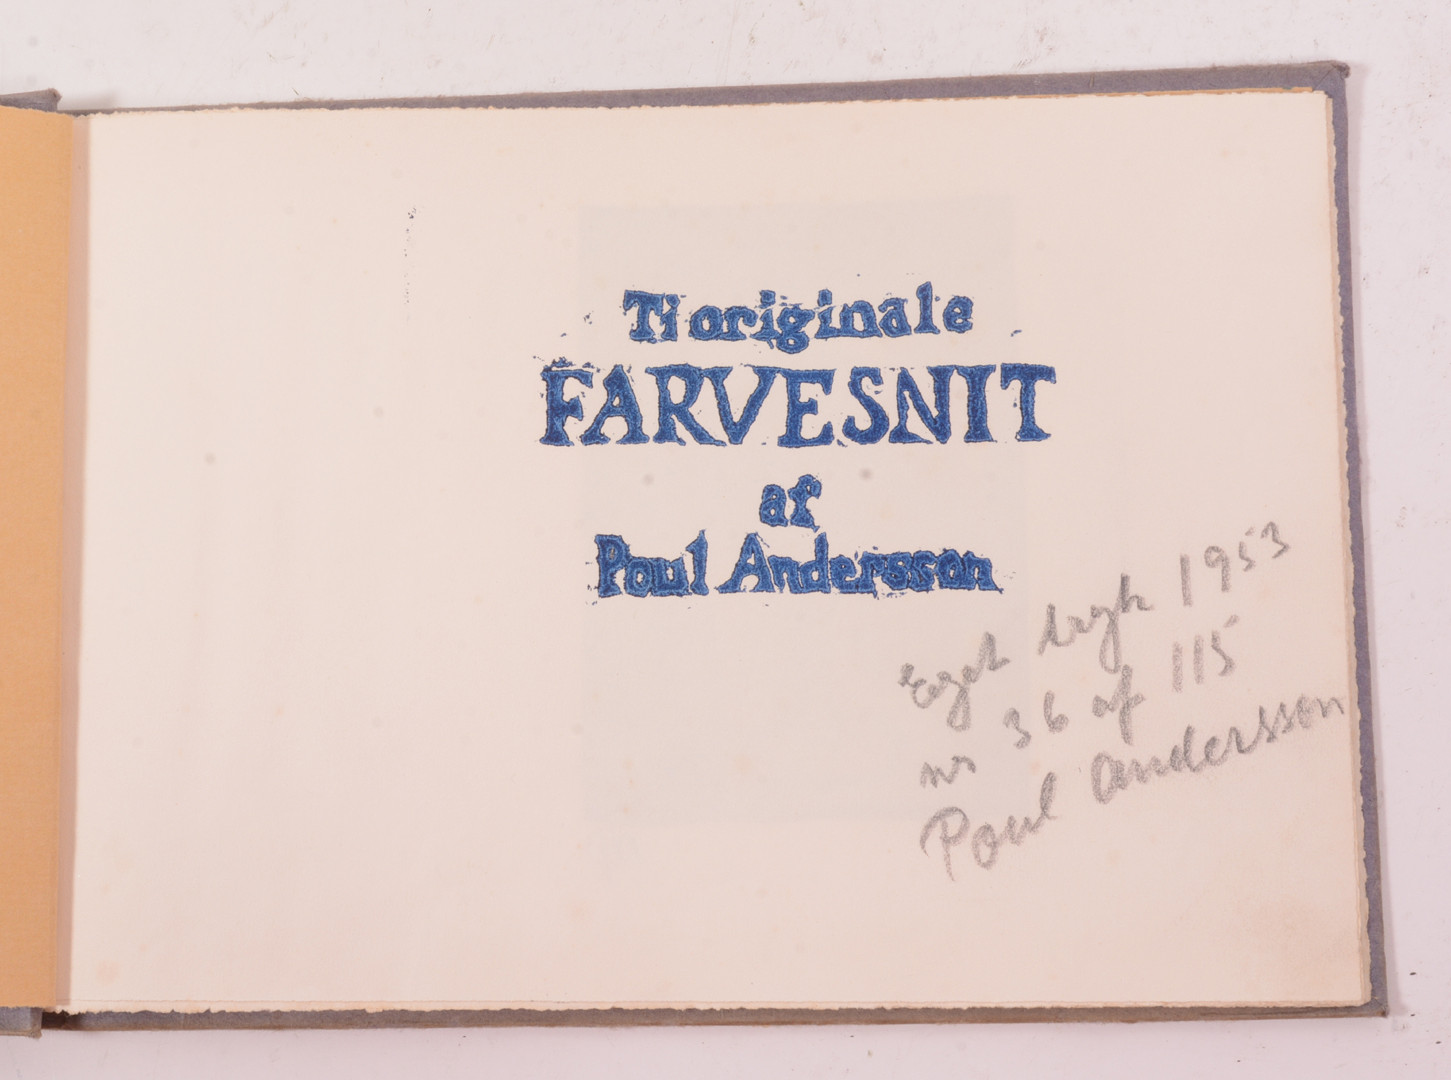 Ti originale
FARVESNIT
af
Poul Andersson
Eget tryk 1953
nr 36 af 115
Poul Andersson